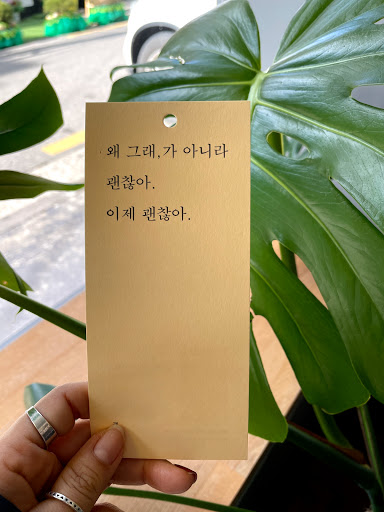 왜 그래,가 아니라
괜찮아.
이제 괜찮아.